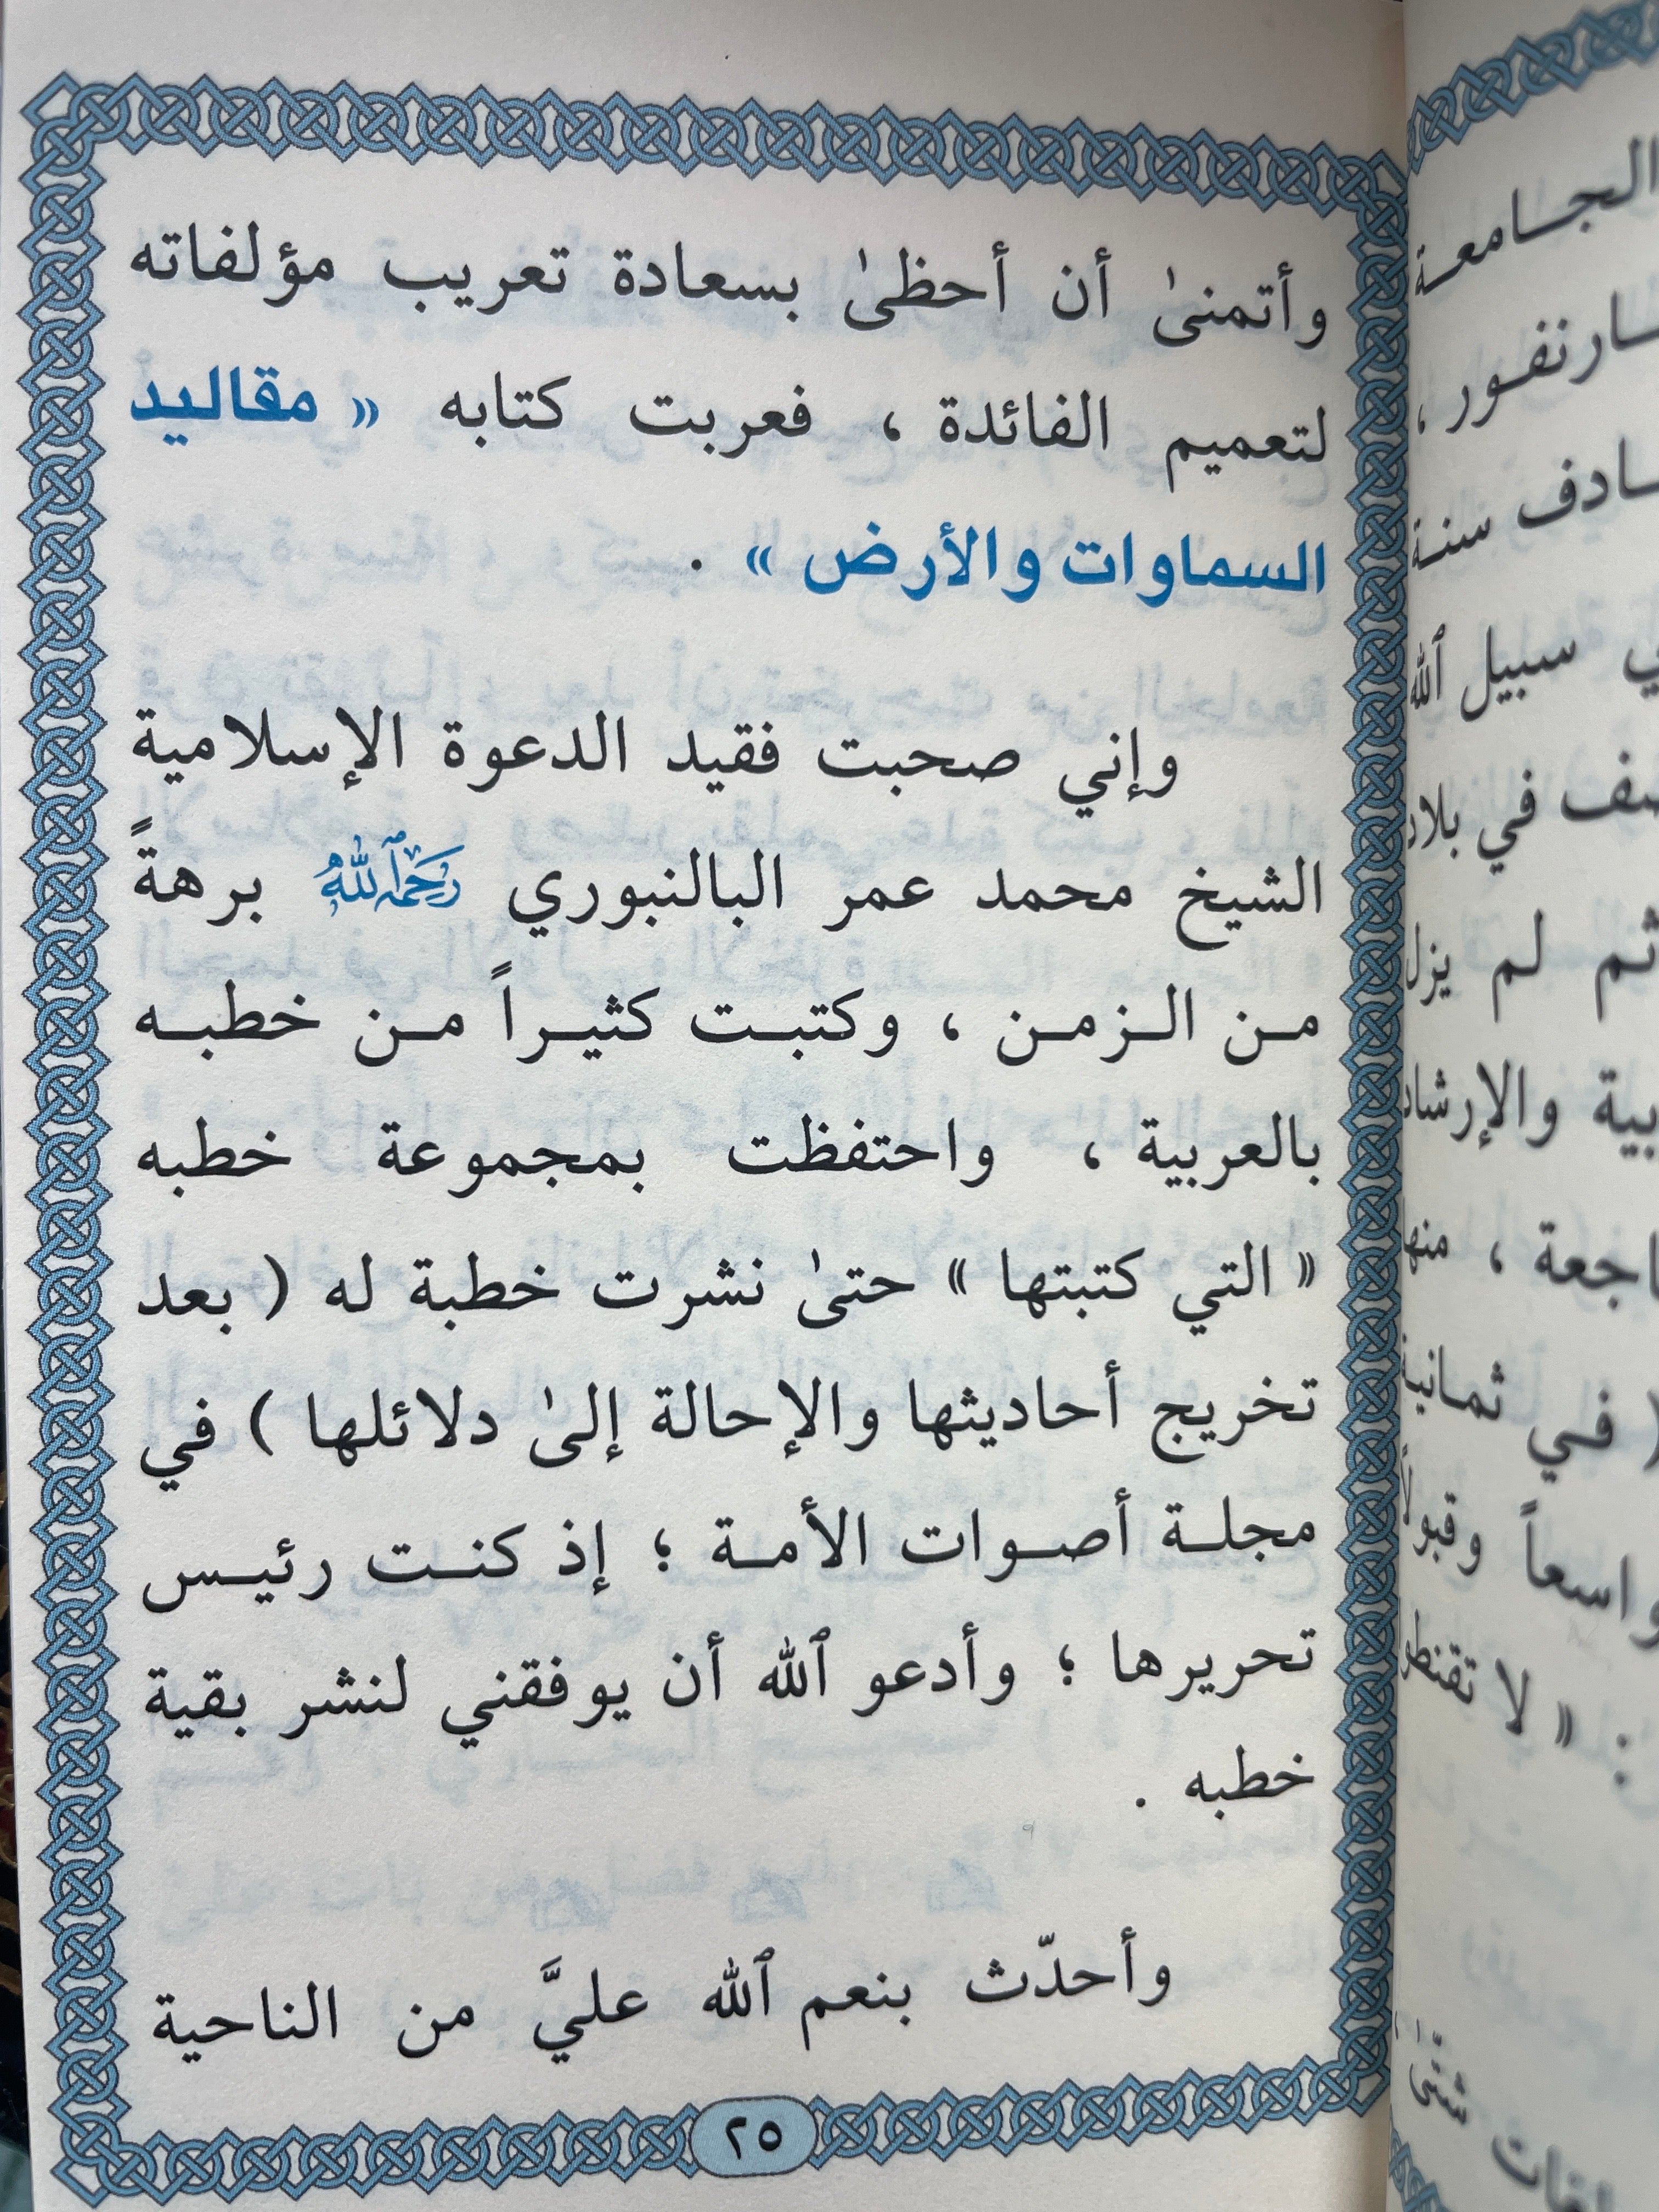 وأتمنىٰ أن أحظىٰ بسعادة تعريب مؤلفاته
لتعميم الفائدة ، فعربت كتابه « مقاليد
السماوات والأرض » .
وإني صحبت فقيد الدعوة الإسلامية
الشيخ محمد عمر البالنبوري رَحِمَهُ ٱللَّهُ برهةً
من الزمن ، وكتبت كثيراً من خطبه
بالعربية ، واحتفظت بمجموعة خطبه
« التي كتبتها » حتىٰ نشرت خطبة له ( بعد
تخريج أحاديثها والإحالة إلىٰ دلائلها ) في
مجلة أصوات الأمة ؛ إذ كنت رئيس
تحريرها ؛ وأدعو ٱلله أن يوفقني لنشر بقية
خطبه .
وأحدّث بنعم ٱلله عليَّ من الناحية
٢٥
الجامعة
سنة
سبيل ٱلله
في بلاد
ثم لم يزل
والإرشاد
، منها
( في ثمانية
واسعاً وقبولاً
« لا تقنطو
شتّىٰ